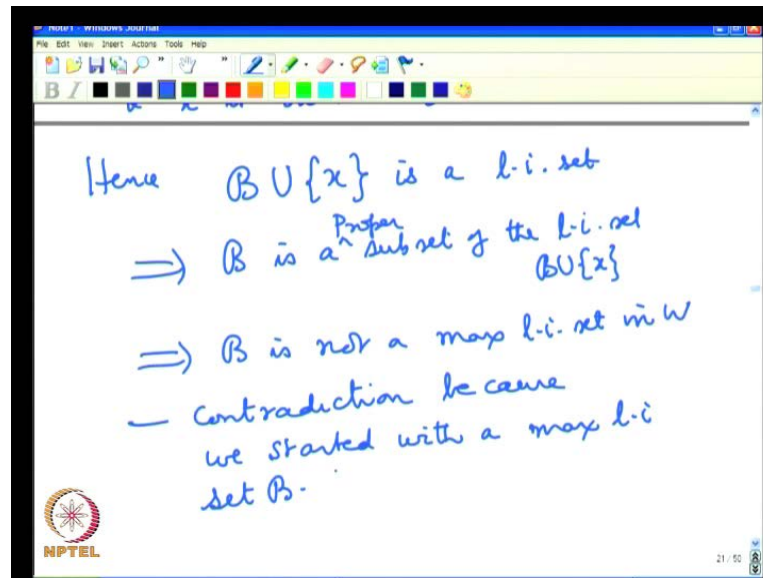 Note1 - Windows Journal
File Edit View Insert Actions Tools Help
B I
Hence B U {x} is a l.i. set
⇒ B is a ^Proper subset of the l.i. set
B U {x}
⇒ B is not a max l.i. set in W
— Contradiction because
we started with a max l.i
set B.
NPTEL
21 / 50